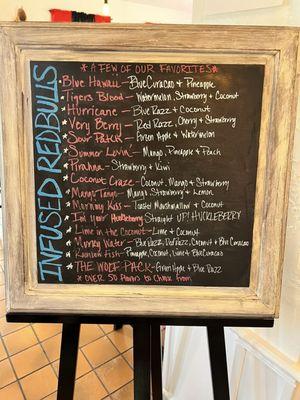 INFUSED REDBULLS
* A FEW OF OUR FAVORITES *
Blue Hawaii - Blue Curacao + Pineapple
Tigers Blood - Watermelon, Strawberry + Coconut
Hurricane - Blue Razz + Coconut
Very Berry - Red Razz, Cherry + Strawberry
Sour Patch - Green Apple + Watermelon
Summer Lovin' - Mango, Pineapple + Peach
Pirahna - Strawberry + Kiwi
Coconut Craze - Coconut, Mango + Strawberry
Mango Tango - Mango, Strawberry + Lemon
Mommy Kiss - Toasted Marshmallow + Coconut
I'm Your Huckleberry Straight UP! HUCKLEBERRY
Lime in the Coconut - Lime + Coconut
Murky Water - Blue Razz, Red Razz, Coconut + Blue Curacao
Rainbow Fish - Pineapple, Coconut, Lime + Blue Curacao
THE WOLF PACK - Green Apple + Blue Razz
* OVER 50 Flavors to Choose From